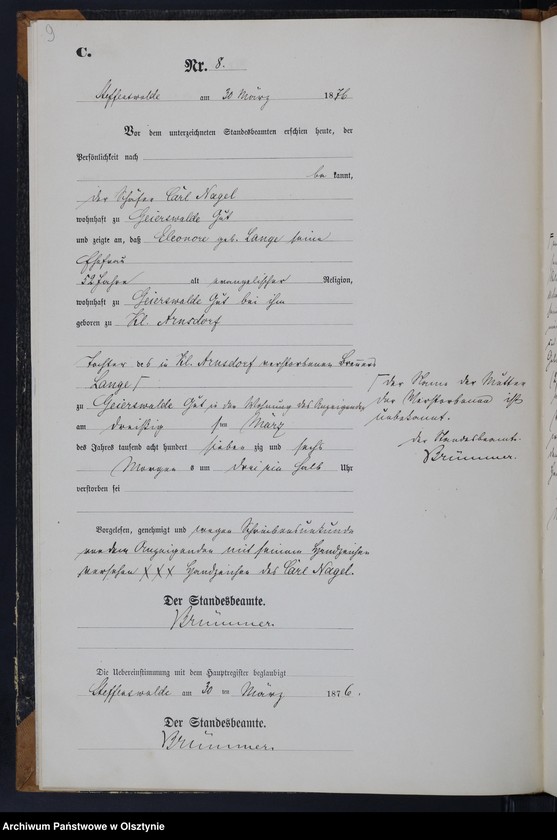 9
C.
Nr. 8.
Steffenswalde am 30 März 1876
Vor dem unterzeichneten Standesbeamten erschien heute, der
Persönlichkeit nach
be kannt,
der Schäfer Carl Nagel
wohnhaft zu Geierswalde Gut
und zeigte an, daß Eleonore geb. Lange seine
Ehefrau
52 Jahre alt evangelischer Religion,
wohnhaft zu Geierswalde Gut bei ihm
geboren zu Kl. Arnsdorf
Tochter des in Kl. Arnsdorf verstorbenen
Lange Γ
zu Geierswalde Gut in der Wohnung des Anzeigenden
am dreißig ten März
des Jahres tausend acht hundert sieben zig und sechs
Morgens um drei ein halb Uhr
verstorben sei
Vorgelesen, genehmigt und wegen Schreibensunkunde
von dem Anzeigenden mit seinem Handzeichen
versehen XXX Handzeichen des Carl Nagel.
Der Standesbeamte.
Brümmer.
Die Uebereinstimmung mit dem Hauptregister beglaubigt
Steffenswalde am 30 ten März 1876.
Der Standesbeamte.
Brümmer.
Γ der Name der Mutter
der Verstorbenen ist
unbekannt.
der Standesbeamte.
Brümmer.
Archiwum Państwowe w Olsztynie